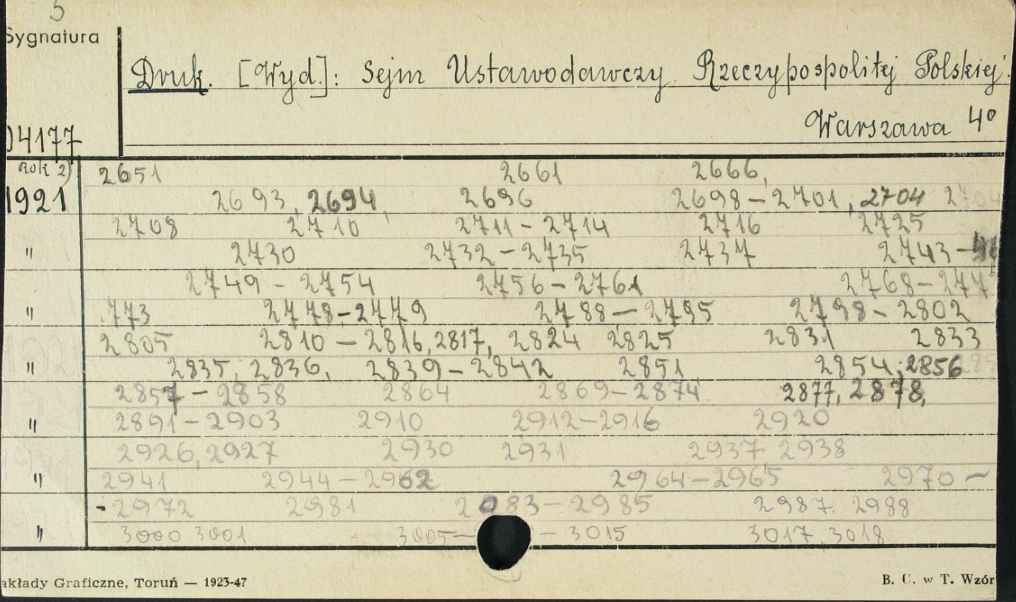 5
Sygnatura
Druk. [Wyd.]: Sejm Ustawodawczy Rzeczypospolitej Polskiej.
04177
Warszawa 4°
Rok 2) 2651 2661 2666,
1921 2693, 2694, 2696 2698 – 2701, 2704 2704
2708 2710 2711 – 2714 2716 2725
" 2730 2732 – 2735 2737 2743 –
2749 – 2754 2756 – 2761 2768 –
" 773 2778 – 2779 2788 – 2795 2798 – 2802
2805 2810 – 2816, 2817, 2824 2825 2831 2833
" 2835, 2836, 2839 – 2842 2851 2854, 2856
2857 – 2858 2864 2869 – 2874 2877, 2878,
" 2891 – 2903 2910 2912 – 2916 2920
2926, 2927 2930 2931 2937 2938
" 2941 2944 – 2962 2964 – 2965 2970 –
- 2972 2981 2983 – 2985 2987. 2988
" 3000 3001 3005 – – 3015 3017. 3018
akłady Graficzne, Toruń — 1923-47
B. U. w T. Wzór